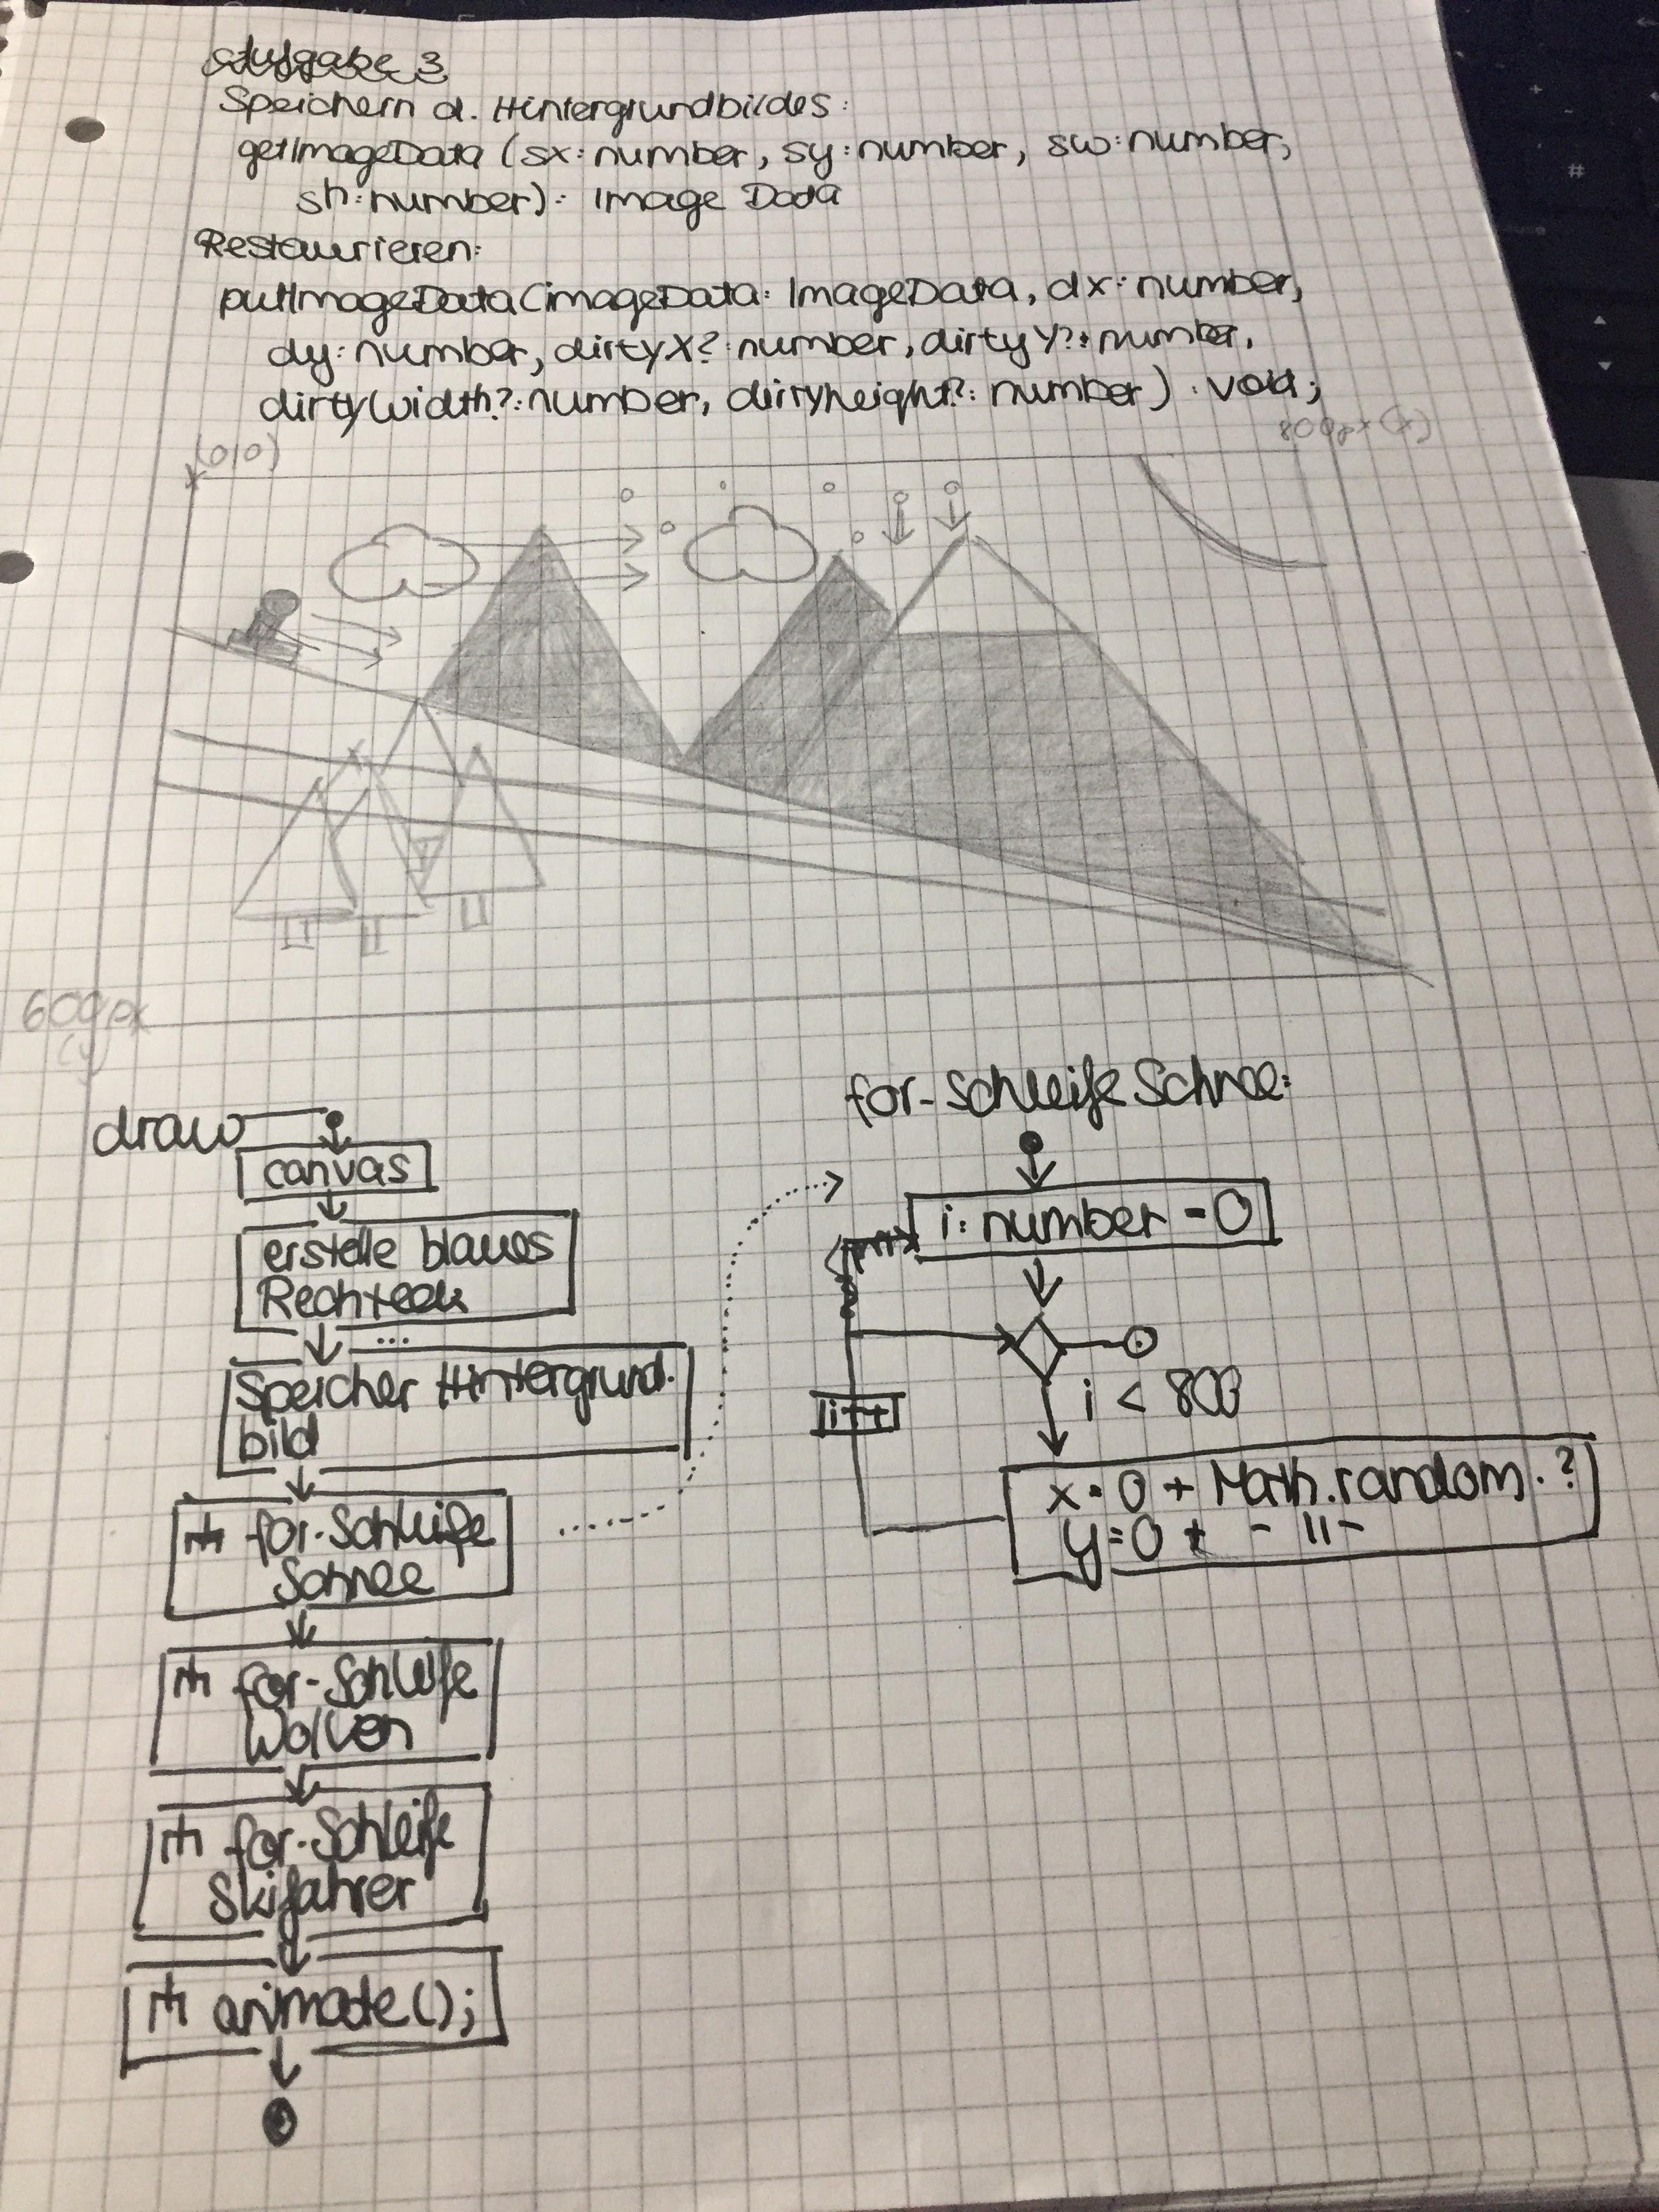 Aufgabe 3
Speichern d. Hintergrundbildes:
getImageData (sx: number, sy: number, sw: number,
sh: number): Image Data
Restaurieren:
putImageData (imageData: ImageData, dx: number,
dy: number, dirtyX?: number, dirtyY?: number,
dirtyWidth?: number, dirtyheight?: number): void;
(0|0)
800px (x)
600px
(y)
draw
canvas
erstelle blaues
Rechteck
...
Speicher Hintergrund-
bild
for-Schleife
Schnee
for-Schleife
Wolken
for-Schleife
Skifahrer
animate();
for-Schleife Schnee:
i: number = 0
i < 800
i++
x = 0 + Math.random . ?
y = 0 + - 11 -